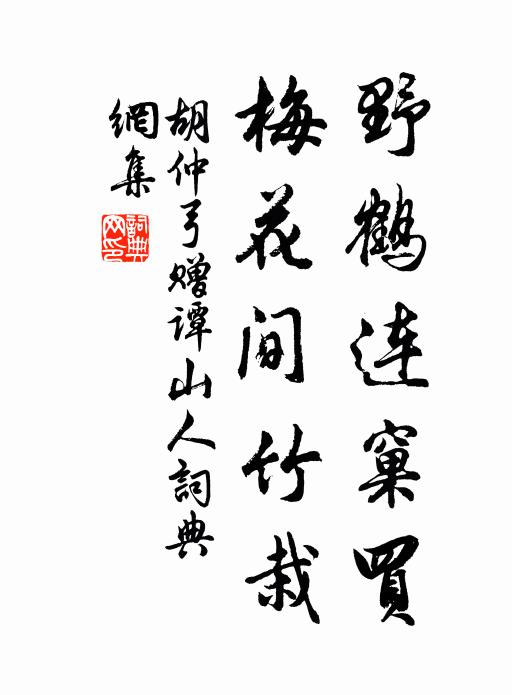 野鶴連窠買
梅花間竹栽
胡仲弓贈譚山人詞典
網集
詞典網印